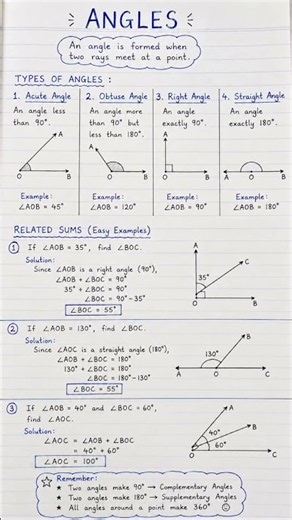 ANGLES
An angle is formed when
two rays meet at a point.
TYPES OF ANGLES :
1. Acute Angle
An angle less
than 90°.
A
O
B
Example:
∠AOB = 45°
2. Obtuse Angle
An angle more
than 90° but
less than 180°.
A
O
B
Example:
∠AOB = 120°
3. Right Angle
An angle
exactly 90°.
A
O
B
Example:
∠AOB = 90°
4. Straight Angle
An angle
exactly 180°.
A
O
B
Example:
∠AOB = 180°
RELATED SUMS (Easy Examples)
1 If ∠AOB = 35°, find ∠BOC.
Solution:
Since ∠AOB is a right angle (90°),
∠AOB + ∠BOC = 90°
35° + ∠BOC = 90°
∠BOC = 90°-35°
∠BOC = 55°
A
C
35°
O
B
2 If ∠AOB = 130°, find ∠BOC.
Solution:
Since ∠AOC is a straight angle (180°),
∠AOB + ∠BOC = 180°
130° + ∠BOC = 180°
∠BOC = 180°-130°
∠BOC = 55°
B
130°
A
O
C
3 If ∠AOB = 40° and ∠BOC = 60°,
find ∠AOC.
Solution:
∠AOC = ∠AOB + ∠BOC
= 40° + 60°
∠AOC = 100°
A
B
40°
60°
O
C
Remember:
★ Two angles make 90° → Complementary Angles
★ Two angles make 180° → Supplementary Angles
★ All angles around a point make 360° ☺